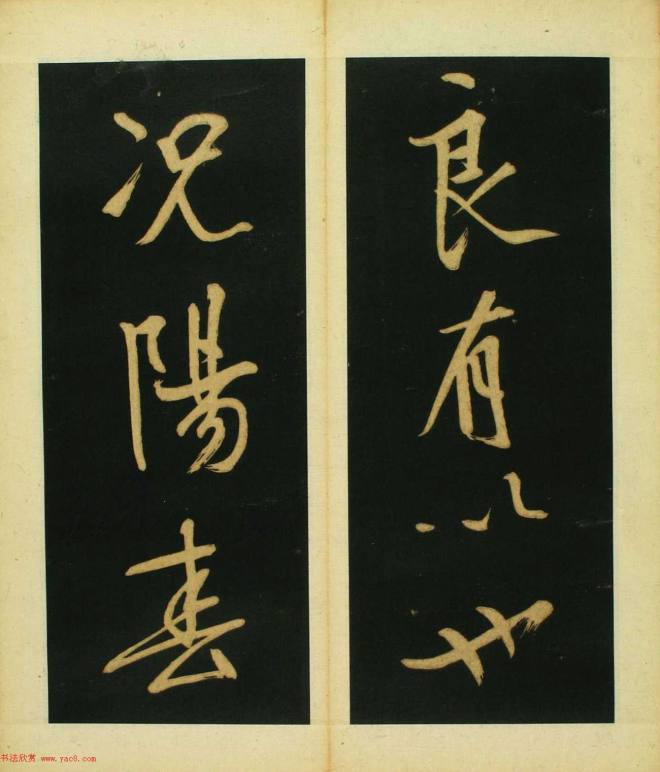 良有以也
况陽春
书法欣赏 www.yac8.com